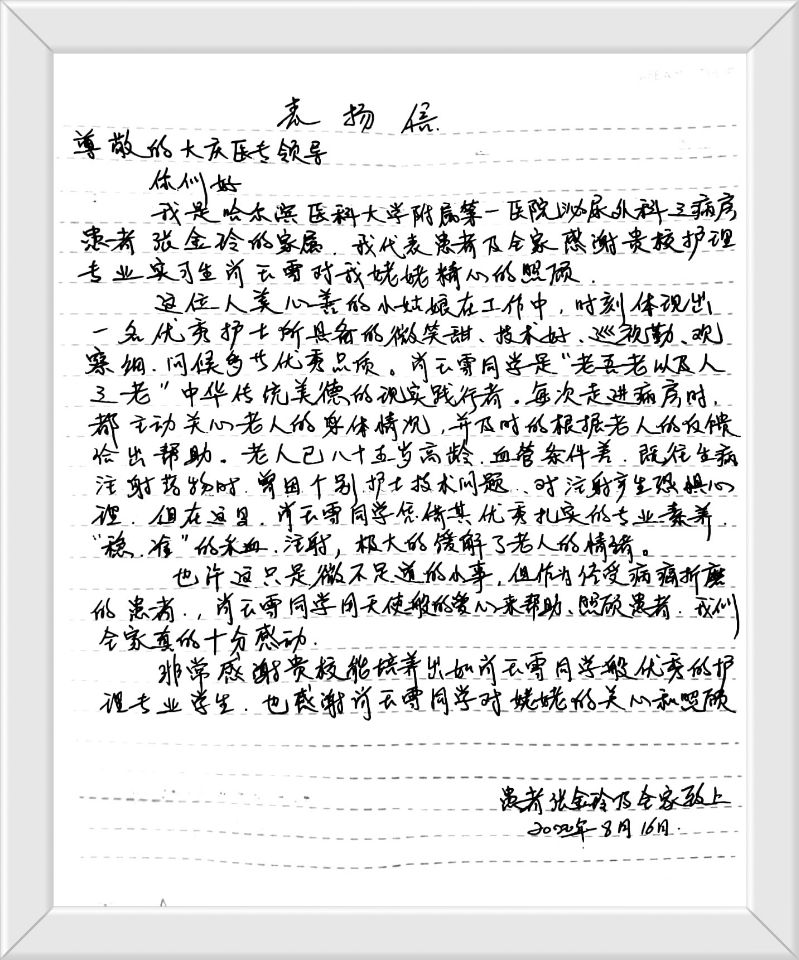 表扬信
尊敬的大庆医专领导
你们好
我是哈尔滨医科大学附属第一医院泌尿外科三病房
患者张金玲的家属.我代表患者及全家感谢贵校护理
专业实习生 云雪对我姥姥精心的照顾.
这位人美心善的小姑娘在工作中,时刻体现出
一名优秀护士所具备的微笑甜、技术好、巡视勤、观
察细、问候多等优秀品质。 云雪同学是“老吾老以及人
之老”中华传统美德的现实践行者。每次走进病房时,
都主动关心老人的身体情况,并及时的根据老人的反馈
给出帮助。老人已八十五岁高龄.血管条件差.既往生病
注射药物时.曾因个别护士技术问题、对注射产生恐惧心
理.但在这里. 云雪同学凭借其优秀扎实的专业素养.
“稳、准”的采血.注射,极大的缓解了老人的情绪。
也许这只是微不足道的小事,但作为经受病痛折磨
的患者., 云雪同学用天使般的爱心来帮助、照顾患者.我们
全家真的十分感动.
非常感谢贵校能培养出如 云雪同学般优秀的护
理专业学生.也感谢 云雪同学对姥姥的关心和照顾
患者张金玲及全家致上
2022年8月16日.